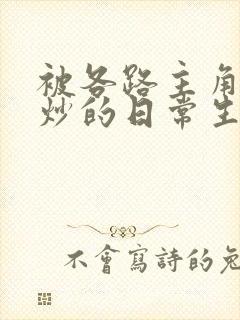 被各路主角
炒的日常生
不會寫詩的兔